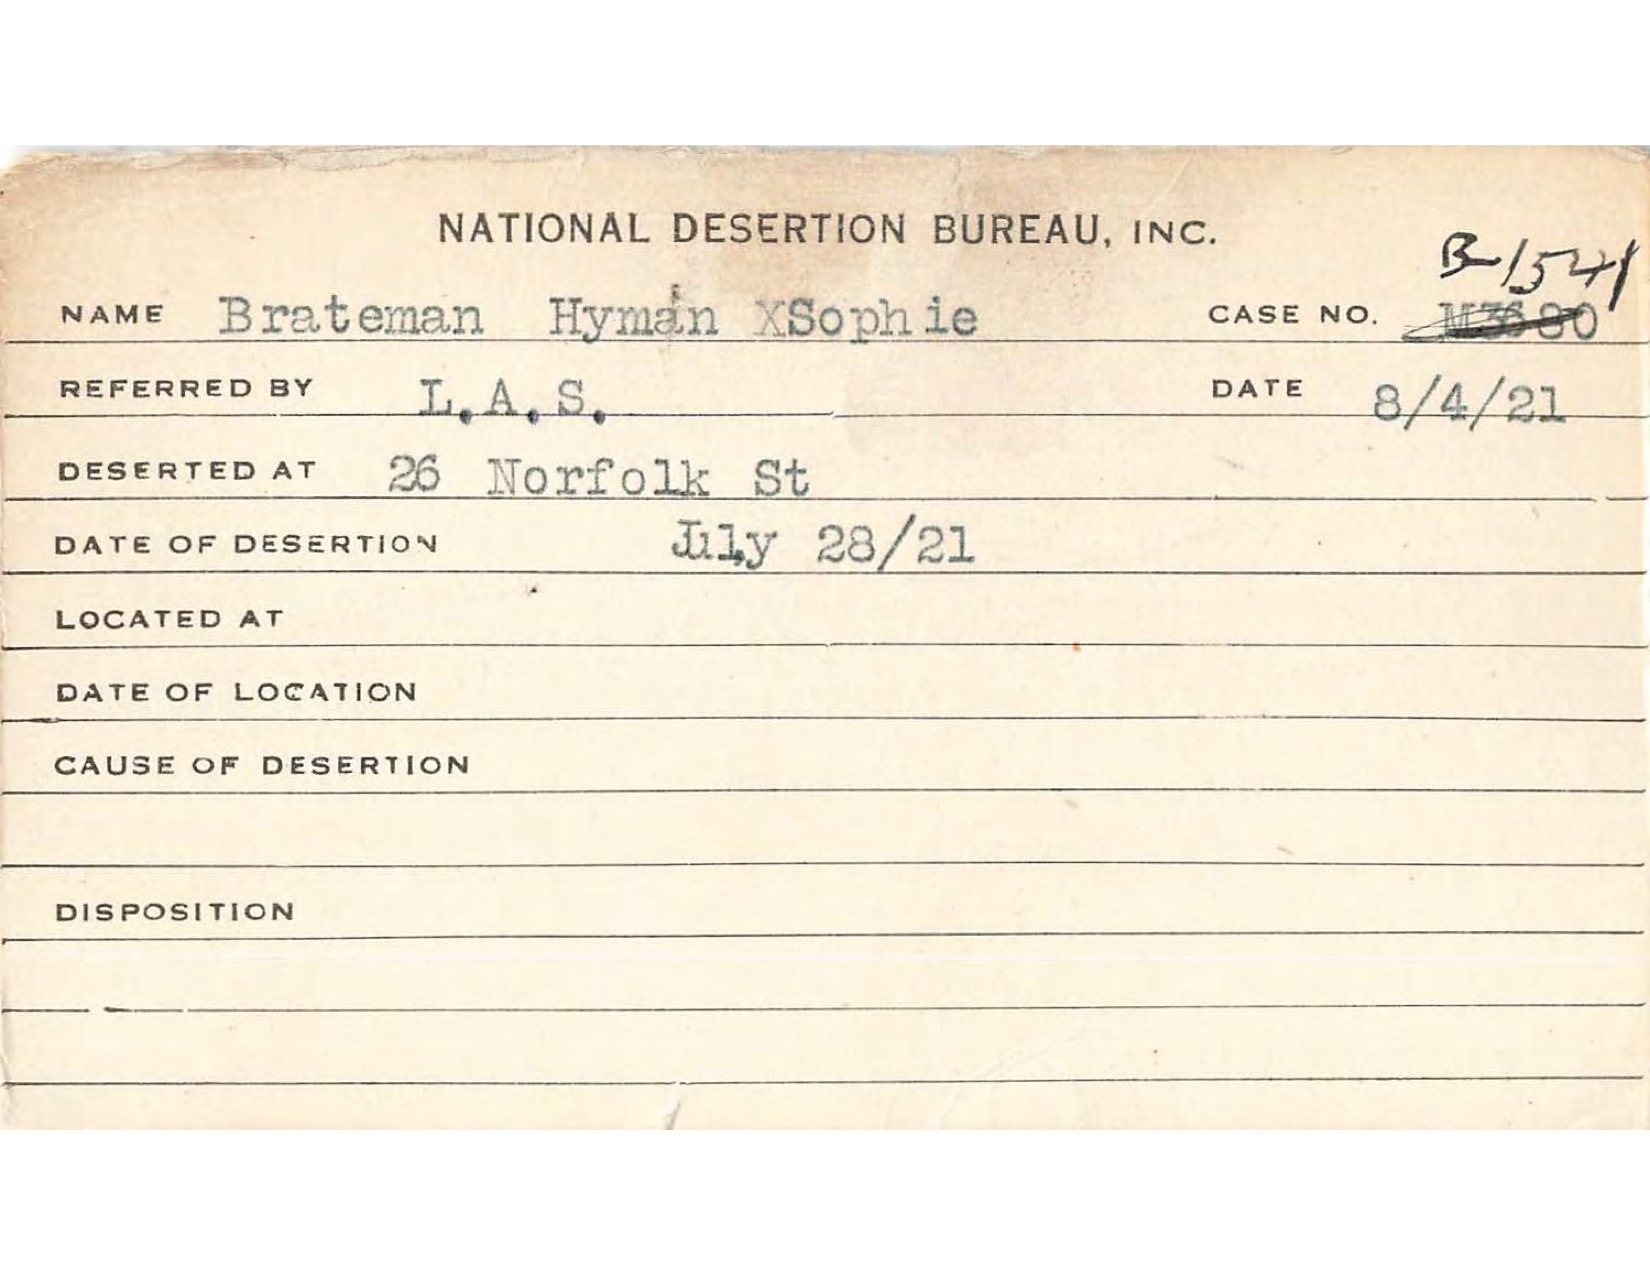 NATIONAL DESERTION BUREAU, INC.
B-1541
NAME Brateman Hyman XSophie CASE NO. M3680
REFERRED BY L.A.S. DATE 8/4/21
DESERTED AT 26 Norfolk St
DATE OF DESERTION July 28/21
LOCATED AT
DATE OF LOCATION
CAUSE OF DESERTION
DISPOSITION